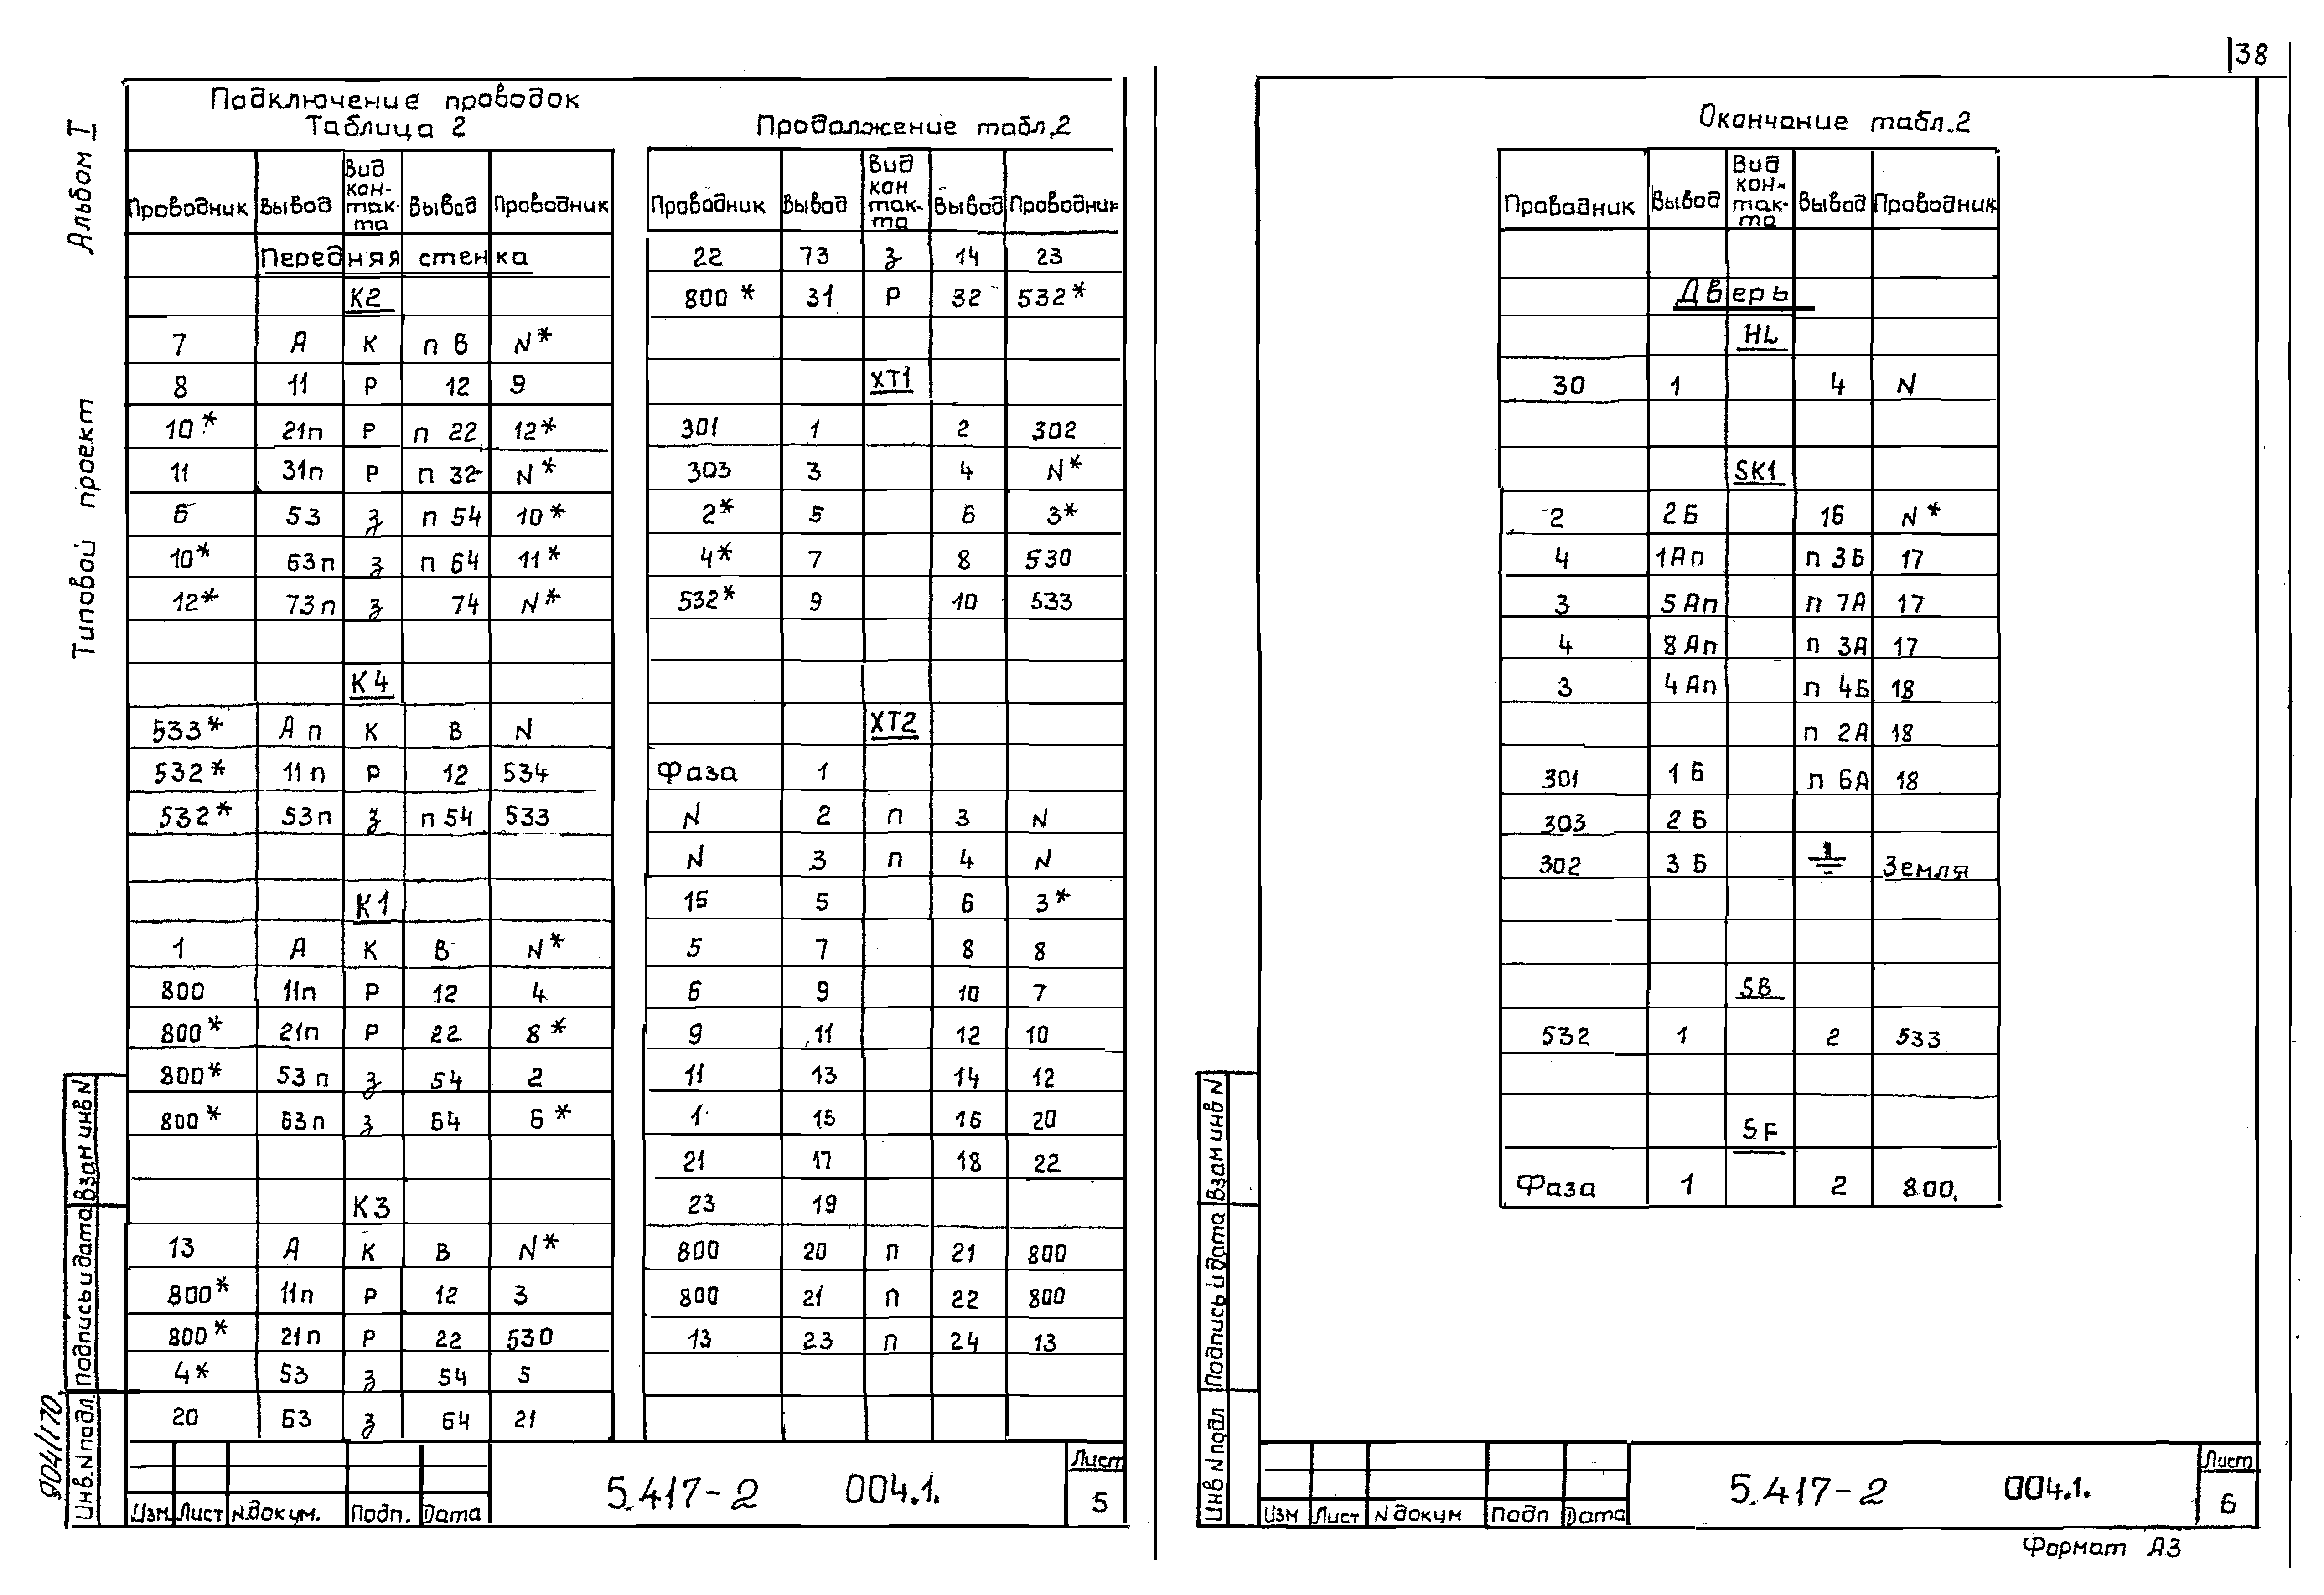 38
Альбом I
Типовой проект
Подключение проводок
Таблица 2
Проводник Вывод Вид кон-так-та Вывод Проводник
Передняя стенка
К2
7 А К п В N*
8 11 Р 12 9
10* 21п Р п 22 12*
11 31п Р п 32 N*
6 53 з п 54 10*
10* 63п з п 64 11*
12* 73п з 74 N*
К4
533* А п К В N
532* 11п Р 12 534
532* 53п з п 54 533
К1
1 А К В N*
800 11п Р 12 4
800* 21п Р 22 8*
800* 53п з 54 2
800* 63п з 64 6*
К3
13 А К В N*
800* 11п Р 12 3
800* 21п Р 22 530
4* 53 з 54 5
20 63 з 64 21
Продолжение табл.2
Проводник Вывод Вид кон так-та Вывод Проводник
22 73 з 14 23
800* 31 Р 32 532*
ХТ1
301 1 2 302
303 3 4 N*
2* 5 6 3*
4* 7 8 530
532* 9 10 533
ХТ2
Фаза 1
N 2 п 3 N
N 3 п 4 N
15 5 6 3*
5 7 8 8
6 9 10 7
9 11 12 10
11 13 14 12
1 15 16 20
21 17 18 22
23 19
800 20 п 21 800
800 21 п 22 800
13 23 п 24 13
Взам инв N
Подпись и дата
Инв. N подл.
904/170
Изм Лист N.докум. Подп. Дата
5.417-2 004.1.
Лист
5
Окончание табл.2
Проводник Вывод Вид кон-так-та Вывод Проводник
Дверь
HL
30 1 4 N
SK1
2 2Б 1Б N*
4 1Ап п 3Б 17
3 5Ап п 7А 17
4 8Ап п 3А 17
3 4Ап п 4Б 18
п 2А 18
301 1Б п 6А 18
303 2Б
302 3Б Земля
SB
532 1 2 533
SF
Фаза 1 2 800.
Взам инв N
Подпись и дата
Инв N подл
Изм Лист N докум Подп Дата
5.417-2 004.1.
Лист
6
Формат А3